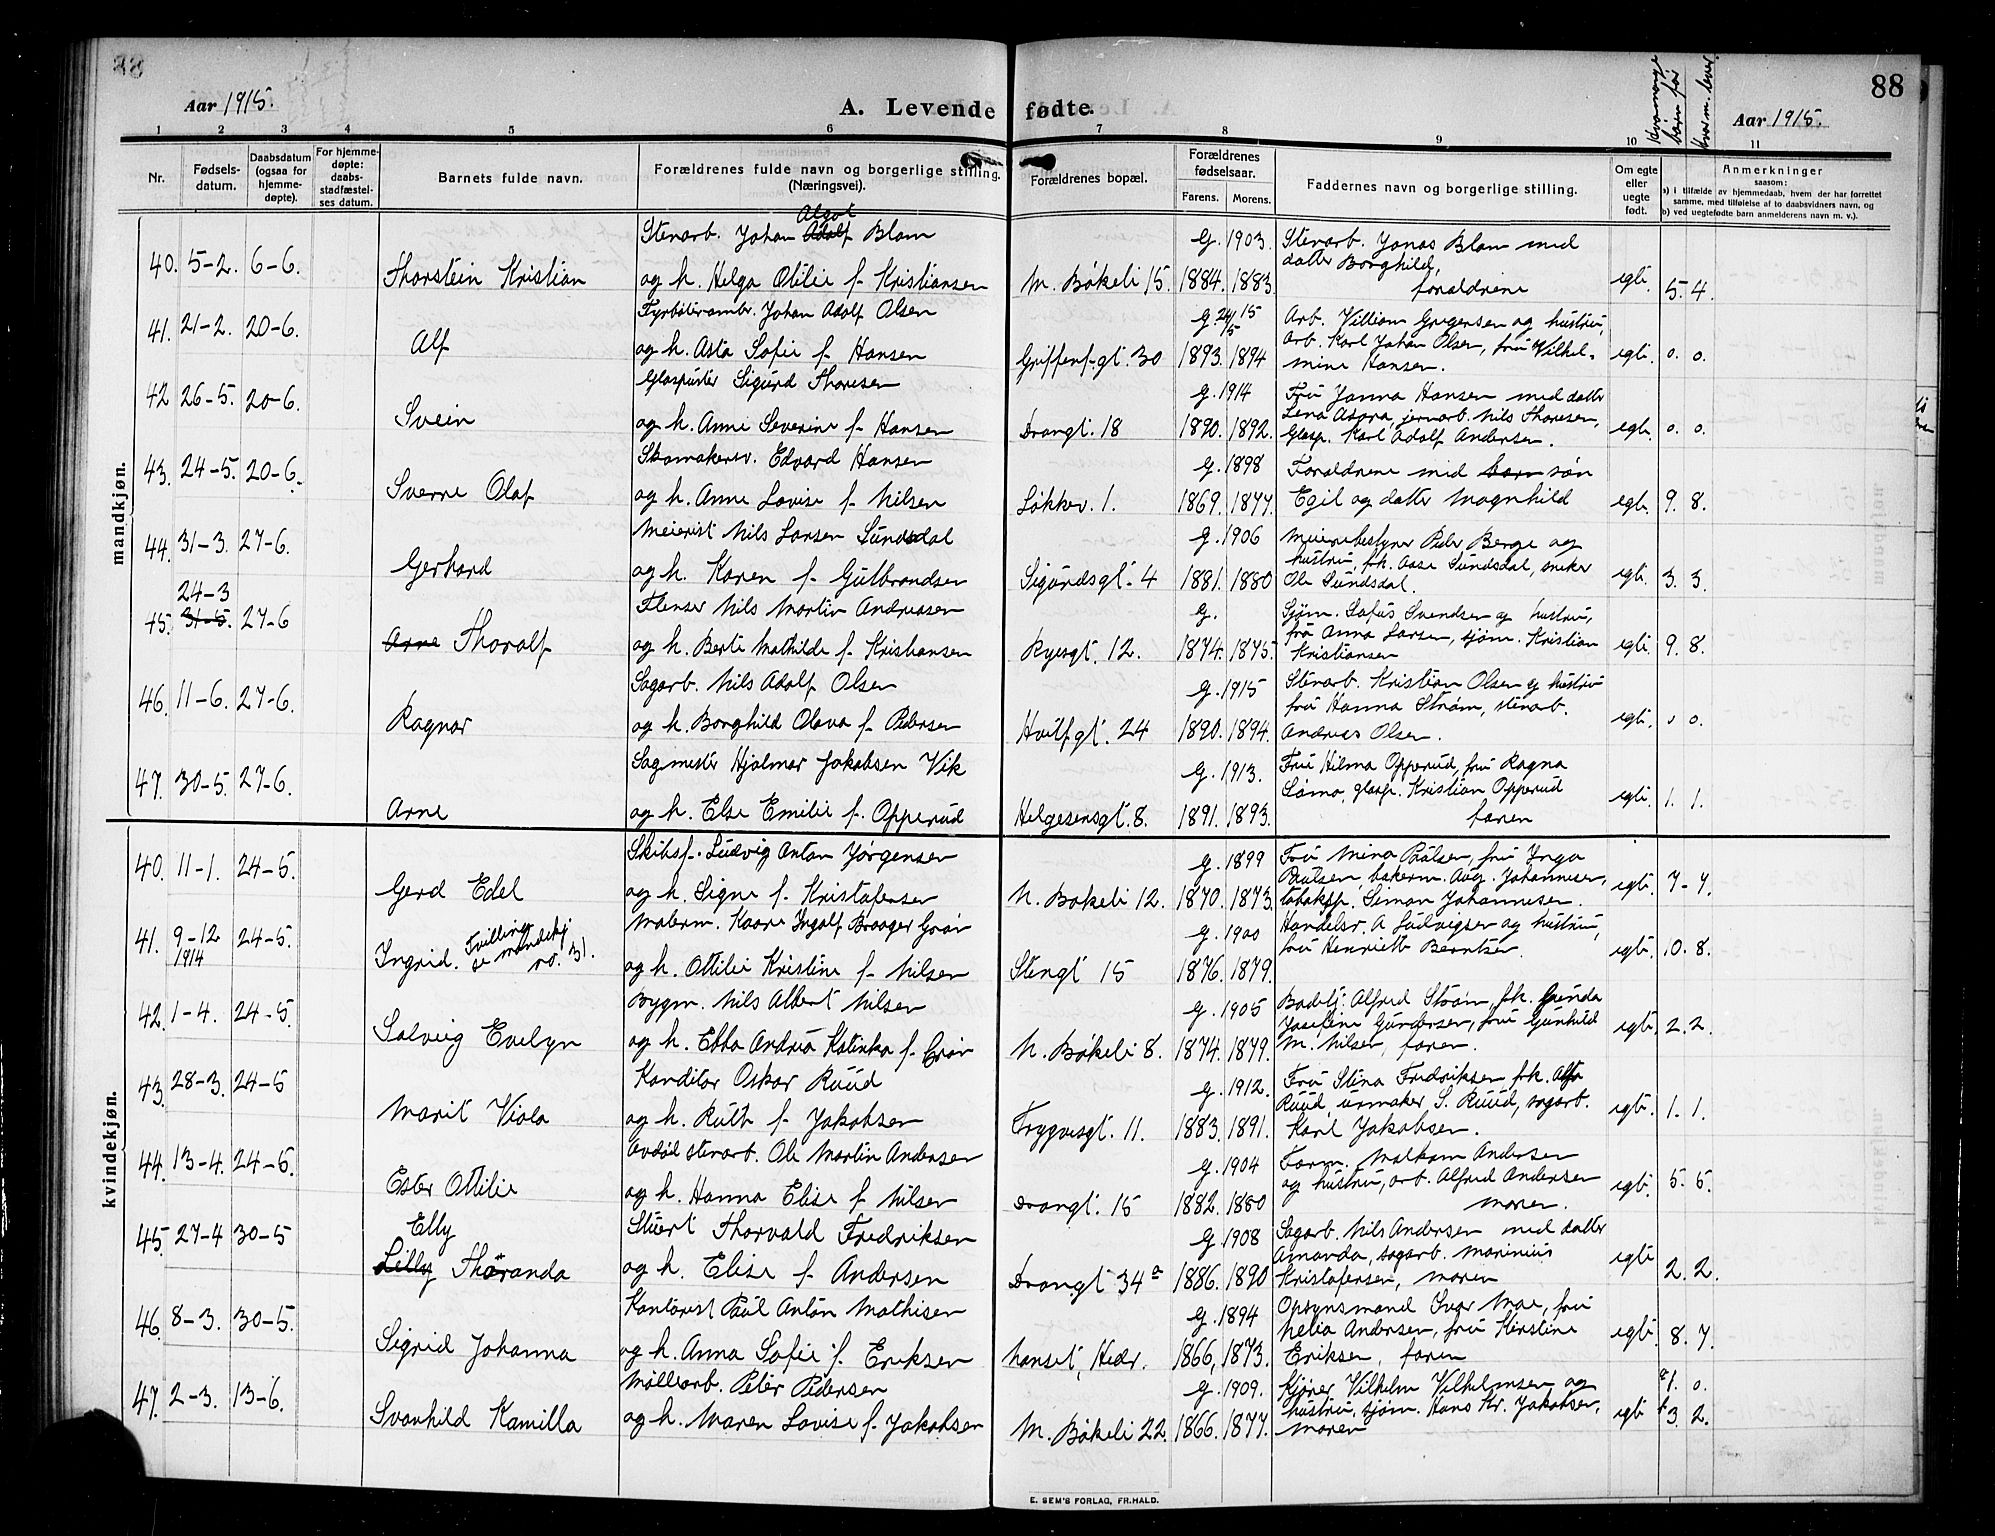 88
Aar 1915.
A. Levende fødte.
Aar 1915.
Hvormange børn før
Hvorm. lever.
1 2 3 4 5 6 7 8 9 10 11
Nr.
Fødsels-datum.
Daabsdatum (ogsaa for hjemme-døpte).
For hjemme-døpte: daabs-stadfæstel-ses datum.
Barnets fulde navn.
Forældrenes fulde navn og borgerlige stilling. (Næringsvei).
Forældrenes bopæl.
Forældrenes fødselsaar.
Farens. Morens.
Faddernes navn og borgerlige stilling.
Om egte eller uegte født.
Anmerkninger
saasom:
a) i tilfælde av hjemmedaab, hvem der har forrettet samme, med tilføielse af to daabsvidners navn, og
b) ved uegtefødte barn anmelderens navn m. v.).
mandkjøn.
Stenarb. Johan Algot Adolf Blom G. 1903. Stenarb. Jonas Blom med
40. 5-2. 6-6. Thorstein Kristian og h. Helga Otilie f. Kristiansen M. Bøkeli 15. 1884. 1883. datter Borghild, forældrene egte 5. 4.
Fyrbøterambr. Johan Adolf Olsen G. 24/5 15 Arb. Villiam Gregersen og hustru,
41. 21-2. 20-6. Alf og h. Asta Sofie f. Hansen Griffenf. gt. 30 1893. 1894 arb. Karl Johan Olsen, fru Vilhel-
mine Hansen. egte. 0. 0.
Glaspuster Sigurd Thoresen G. 1914 Fru Janna Hansen med datter
42 26-5. 20-6. Svein og h. Anne Severine f. Hansen Drangt. 18 1890. 1892. Lena Asora, jernarb. Nils Thoresen,
Glasp. Karl Adolf Andersen. egte. 0. 0.
Skomakersv. Edvard Hansen G. 1898 Forældrene med barn søn
43. 24-5. 20-6. Sverre Olaf og h. Anne Lovise f. Nilsen Løkkev. 1. 1869. 1877. Egil og datter Magnhild egte. 9. 8.
Meierist Nils Larsen Sundsdal G. 1906 Meieribestyrer Peder Berge og
44. 31-3. 27-6. Gerhard og h. Karen f. Gulbrandsen Sigurdsgt. 4 1881. 1880 hustru, frk. Aase Sundsdal, sniker
Ole Sundsdal. egte. 3. 3.
24-3
Flenser Nils Martin Andreasen G. Sjøm. Sofus Svendsen og hustru,
45. 31-5. 27-6 Arne Thoralf og h. Berte Mathilde f. Kristiansen Ryesgt. 12. 1874. 1875. fru Anna Larsen, sjøm. Kristian
Kristiansen egte. 9. 8.
Sagarb. Nils Adolf Olsen G. 1915 Stenarb. Kristian Olsen og hustru
46. 11-6. 27-6. Ragnar og h. Borghild Olava f. Pedersen Hvitf gt. 24 1890. 1894. fru Hanna Strøm, stenarb.
Andreas Olsen. egte. 0 0.
Sagmester Hjalmar Jakobsen Vik G. 1913. Fru Hilma Opperud, fru Ragna
47. 30-5. 27-6. Arne og h. Else Emilie f. Opperud Helgesensgt. 8. 1891. 1893. Sømo, glasp. Kristian Opperud
faren egte. 1. 1.
kvindekjøn.
Skibsf. Ludvig Anton Jørgensen G. 1899 Fru Mina Paulsen, fru Inga
40. 11-1. 24-5. Gerd Edel og h. Signe f. Kristofersen N. Bøkeli 12. 1870. 1873. Paulsen, bakerm. Aug. Johannesen,
tobaksf. Simon Johannesen. egte. 7-7.
Malerm. Kaare Ingolf Braager Grøn G. 1900 Handelsr. A Ludvigsen og hustru,
41. 9-12 1914 24-5. Ingrid. Tvilling se mandskj no. 31. og h. Ottilie Kristine f. Nilsen Stengt 15 1876. 1879. fru Henriette Berntsen. egte. 10. 8.
Bygm. Nils Albert Nilsen G. 1905 Badebtj. Alfred Strøm, frk. Gunda
42. 1-4. 24-5. Solveig Evelyn og h. Ebba Andrea Katinka f. Grøn N. Bøkeli 8. 1874. 1879. Josefine Gundersen, fru Gunhild
M. Nilsen, faren. egte. 2. 2.
Konditor Oskar Ruud G. 1912. Fru Stina Fredriksen, frk. Alfa
43. 28-3. 24-5 Marit Viola og h. Ruth f. Jakobsen Trygvesgt. 11. 1883. 1891. Ruud, urmaker S. Ruud, sagarb.
Karl Jakobsen. egte. 1. 1.
Avdød stenarb. Ole Martin Andersen G. 1904 Form. Malkom Andersen
44. 13-4. 24-5. Ester Ottilie og h. Hanna Elise f. Nilsen Drangt. 15 1882. 1880 og hustru, arb. Alfred Andersen
moren. egte. 5. 5.
Elly
Stuert Thorvald Fredriksen G. 1908 Sagarb. Nils Andersen med datter
45. 27-4 30-5 Lilly Thoranda og h. Elise f. Andersen Drangt 34a 1886. 1890 Amanda, sagarb. Marinius
Kristofersen, moren egte 2. 2.
Kontorist Paul Anton Mathisen G. 1894 Opsynsmand Ivar Moe, fru
46. 8-3. 30-5. Sigrid Johanna og h. Anna Sofie f. Eriksen Nanset, Hedr. 1866, 1873. Nelia Andersen, fru Kirstine
Eriksen, faren egte. 8. 7.
Møllearb. Peter Pedersen G. 1909. Kjører Vilhelm Vilhelmsen og a 1. 0.
47. 2-3. 13-6. Svanhild Kamilla og h. Maren Lovise f. Jakobsen M. Bøkeli 22. 1866. 1877. hustru, sjøm. Hans Kr. Jakobsen,
moren egte f 3. 2.
E. SEM'S FORLAG, FR.HALD.